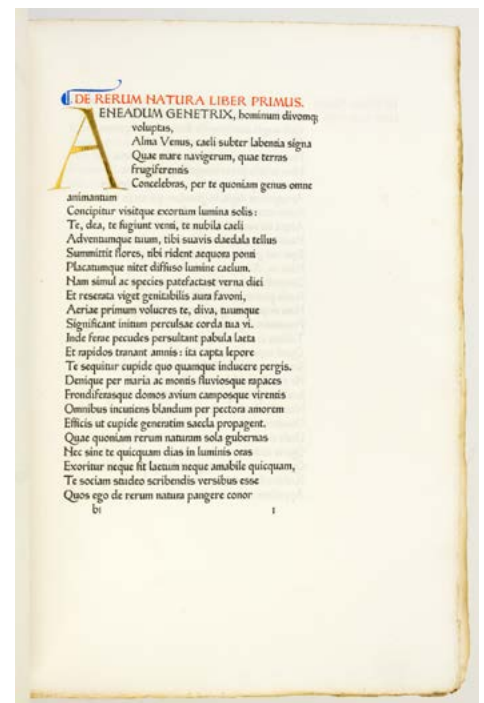 DE RERUM NATURA LIBER PRIMUS.
AENEADUM GENETRIX, hominum divomq;
voluptas,
Alma Venus, caeli subter labentia signa
Quae mare navigerum, quae terras
frugiferentis
Concelebras, per te quoniam genus omne
animantum
Concipitur visitque exortum lumina solis:
Te, dea, te fugiunt venti, te nubila caeli
Adventumque tuum, tibi suavis daedala tellus
Summittit flores, tibi rident aequora ponti
Placatumque nitet diffuso lumine caelum.
Nam simul ac species patefactast verna diei
Et reserata viget genitabilis aura favoni,
Aeriae primum volucres te, diva, tuumque
Significant initum perculsae corda tua vi.
Inde ferae pecudes persultant pabula laeta
Et rapidos tranant amnis: ita capta lepore
Te sequitur cupide quo quamque inducere pergis.
Denique per maria ac montis fluviosque rapaces
Frondiferasque domos avium camposque virentis
Omnibus incutiens blandum per pectora amorem
Efficis ut cupide generatim saecla propagent.
Quae quoniam rerum naturam sola gubernas
Nec sine te quicquam dias in luminis oras
Exoritur neque fit laetum neque amabile quicquam,
Te sociam studeo scribendis versibus esse
Quos ego de rerum natura pangere conor
b1 1